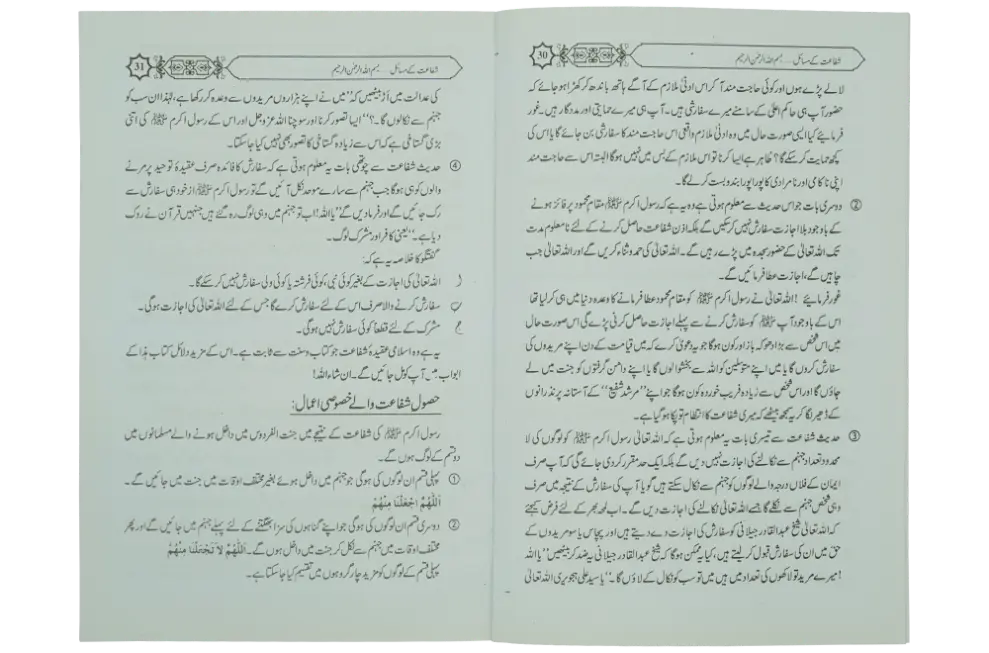 30 شفاعت کے مسائل ... بسم اللہ الرحمٰن الرحیم
لالے پڑے ہوں اور کوئی حاجت مند آ کر اس ادنیٰ ملازم کے آگے ہاتھ باندھ کر کھڑا ہو جائے کہ
حضور آپ ہی حاکم اعلیٰ کے سامنے میرے سفارشی ہیں۔ آپ ہی میرے حمایتی اور مددگار ہیں۔ غور
فرمایئے کیا ایسی صورت حال میں وہ ادنیٰ ملازم واقعی اس حاجت مند کا سفارشی بن جائے گا یا اس کی
کچھ حمایت کر سکے گا؟ ظاہر ہے ایسا کرنا تو اس ملازم کے بس میں نہیں ہوگا البتہ اس سے حاجت مند
اپنی ناکامی اور نامرادی کا پورا پورا بندوبست کر لے گا۔
② دوسری بات جو اس حدیث سے معلوم ہوتی ہے وہ یہ ہے کہ رسول اکرم ﷺ مقام محمود پر فائز ہونے
کے باوجود بلا اجازت سفارش نہیں کر سکیں گے بلکہ اذن شفاعت حاصل کرنے کے لئے نامعلوم مدت
تک اللہ تعالیٰ کے حضور سجدہ میں پڑے رہیں گے۔ اللہ تعالیٰ کی حمد و ثناء کریں گے اور اللہ تعالیٰ جب
چاہیں گے، اجازت عطا فرمائیں گے۔
غور فرمایئے! اللہ تعالیٰ نے رسول اکرم ﷺ کو مقام محمود عطا فرمانے کا وعدہ دنیا میں ہی کر لیا تھا
اس کے باوجود آپ ﷺ کو سفارش کرنے سے پہلے اجازت حاصل کرنی پڑے گی اس صورت حال
میں اس شخص سے بڑا دھوکہ باز اور کون ہوگا جو یہ دعویٰ کرے کہ میں قیامت کے دن اپنے مریدوں کی
سفارش کروں گا یا میں اپنے متوسلین کو اللہ سے بخشوا لوں گا یا اپنے دامن گرفتوں کو جنت میں لے
جاؤں گا اور اس شخص سے زیادہ فریب خوردہ کون ہوگا جو اپنے ”مرشد شفیع“ کے آستانہ پر نذرانوں
کے ڈھیر لگا کر یہ سمجھ بیٹھے کہ میری شفاعت کا انتظام تو پکا ہو گیا ہے۔
③ حدیث شفاعت سے تیسری بات یہ معلوم ہوتی ہے کہ اللہ تعالیٰ رسول اکرم ﷺ کو لوگوں کی لا
محدود تعداد جہنم سے نکالنے کی اجازت نہیں دیں گے بلکہ ایک حد مقرر کر دی جائے گی کہ آپ صرف
ایمان کے فلاں درجہ والے لوگوں کو جہنم سے نکال سکتے ہیں گویا آپ کی سفارش کے نتیجہ میں صرف
وہی شخص جہنم سے نکلے گا جسے اللہ تعالیٰ نکالنے کی اجازت دیں گے۔ اب لمحہ بھر کے لئے فرض کیجئے
کہ اللہ تعالیٰ شیخ عبدالقادر جیلانی کو سفارش کی اجازت دے دیتے ہیں اور پچاس یا سو مریدوں کے
حق میں ان کی سفارش قبول کر لیتے ہیں، کیا یہ ممکن ہوگا کہ شیخ عبدالقادر جیلانی یہ ضد کر بیٹھیں ”یا اللہ
! میرے مرید تو لاکھوں کی تعداد میں ہیں میں تو سب کو نکال کے لاؤں گا۔“ یا سید علی ہجویری اللہ تعالیٰ
31 شفاعت کے مسائل ... بسم اللہ الرحمٰن الرحیم
کی عدالت میں اڑ بیٹھیں کہ ”میں نے اپنے ہزاروں مریدوں سے وعدہ کر رکھا ہے، لہٰذا ان سب کو
جہنم سے نکالوں گا۔؟“ ایسا تصور کرنا اور سوچنا اللہ عزوجل اور اس کے رسول اکرم ﷺ کی اتنی
بڑی گستاخی ہے کہ اس سے زیادہ گستاخی کا تصور بھی نہیں کیا جا سکتا۔
④ حدیث شفاعت سے چوتھی بات یہ معلوم ہوتی ہے کہ سفارش کا فائدہ صرف عقیدۂ توحید پر مرنے
والوں کو ہی ہوگا جب جہنم سے سارے موحد نکل آئیں گے تو رسول اکرم ﷺ از خود ہی سفارش سے
رک جائیں گے اور فرما دیں گے ”یا اللہ! اب تو جہنم میں وہی لوگ رہ گئے ہیں جنہیں قرآن نے روک
دیا ہے۔“ یعنی کافر اور مشرک لوگ۔
گفتگو کا خلاصہ یہ ہے کہ:
ا اللہ تعالیٰ کی اجازت کے بغیر کوئی نبی، کوئی فرشتہ یا کوئی ولی سفارش نہیں کر سکے گا۔
ب سفارش کرنے والا صرف اس کے لئے سفارش کرے گا جس کے لئے اللہ تعالیٰ کی اجازت ہوگی۔
ج مشرک کے لئے قطعاً کوئی سفارش نہیں ہوگی۔
یہ ہے وہ اسلامی عقیدۂ شفاعت جو کتاب و سنت سے ثابت ہے۔ اس کے مزید دلائل کتاب ہذا کے
ابواب میں آپ کو مل جائیں گے۔ ان شاء اللہ!
حصول شفاعت والے خصوصی اعمال:
رسول اکرم ﷺ کی شفاعت کے نتیجے میں جنت الفردوس میں داخل ہونے والے مسلمانوں میں
دو قسم کے لوگ ہوں گے۔
① پہلی قسم ان لوگوں کی ہوگی جو جہنم میں داخل ہوئے بغیر مختلف اوقات میں جنت میں جائیں گے۔
اَللّٰهُمَّ اجْعَلْنَا مِنْهُمْ
② دوسری قسم ان لوگوں کی ہوگی جو اپنے گناہوں کی سزا بھگتنے کے لئے پہلے جہنم میں جائیں گے اور پھر
مختلف اوقات میں جہنم سے نکل کر جنت میں داخل ہوں گے۔ اَللّٰهُمَّ لاَ تَجْعَلْنَا مِنْهُمْ
پہلی قسم کے لوگوں کو مزید چار گروہوں میں تقسیم کیا جا سکتا ہے۔